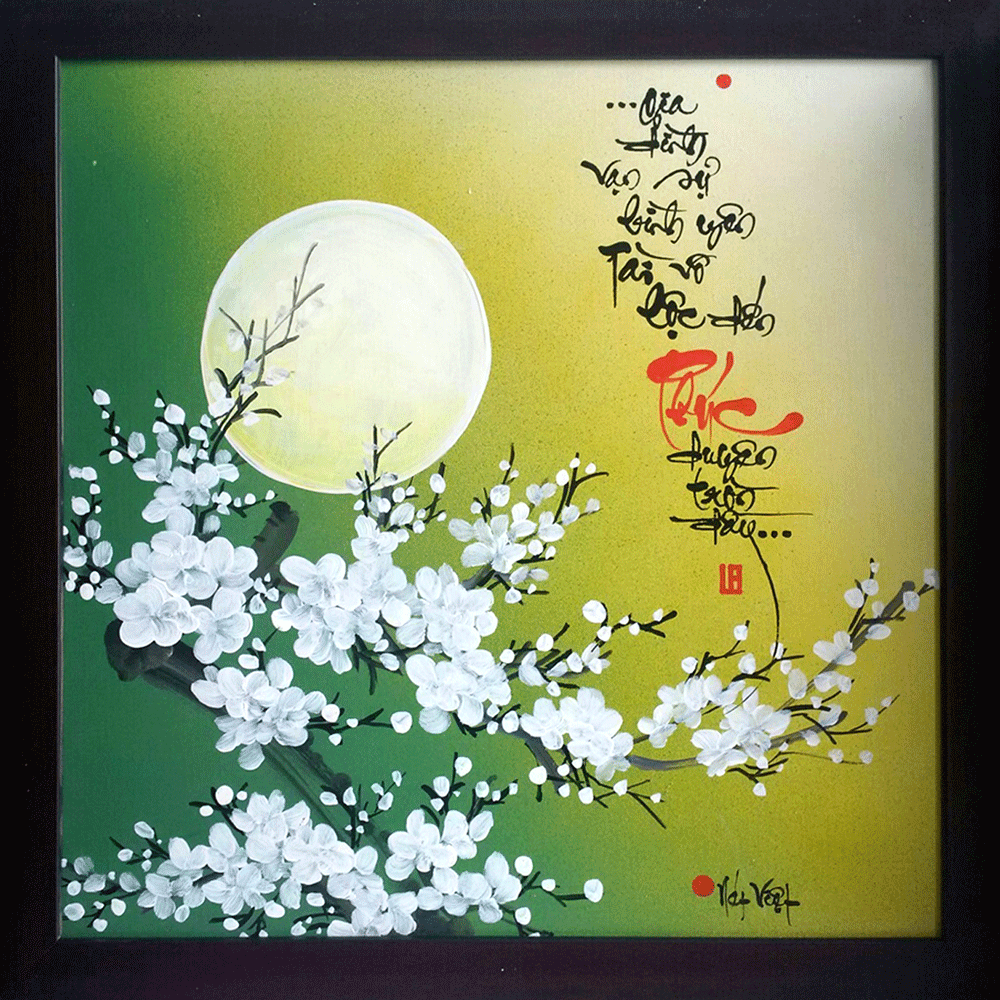 ...Gia
đình
Vạn sự
bình yên
Tài vô
lộc đến
Phúc
duyên
tròn
đầy...
Nét Việt